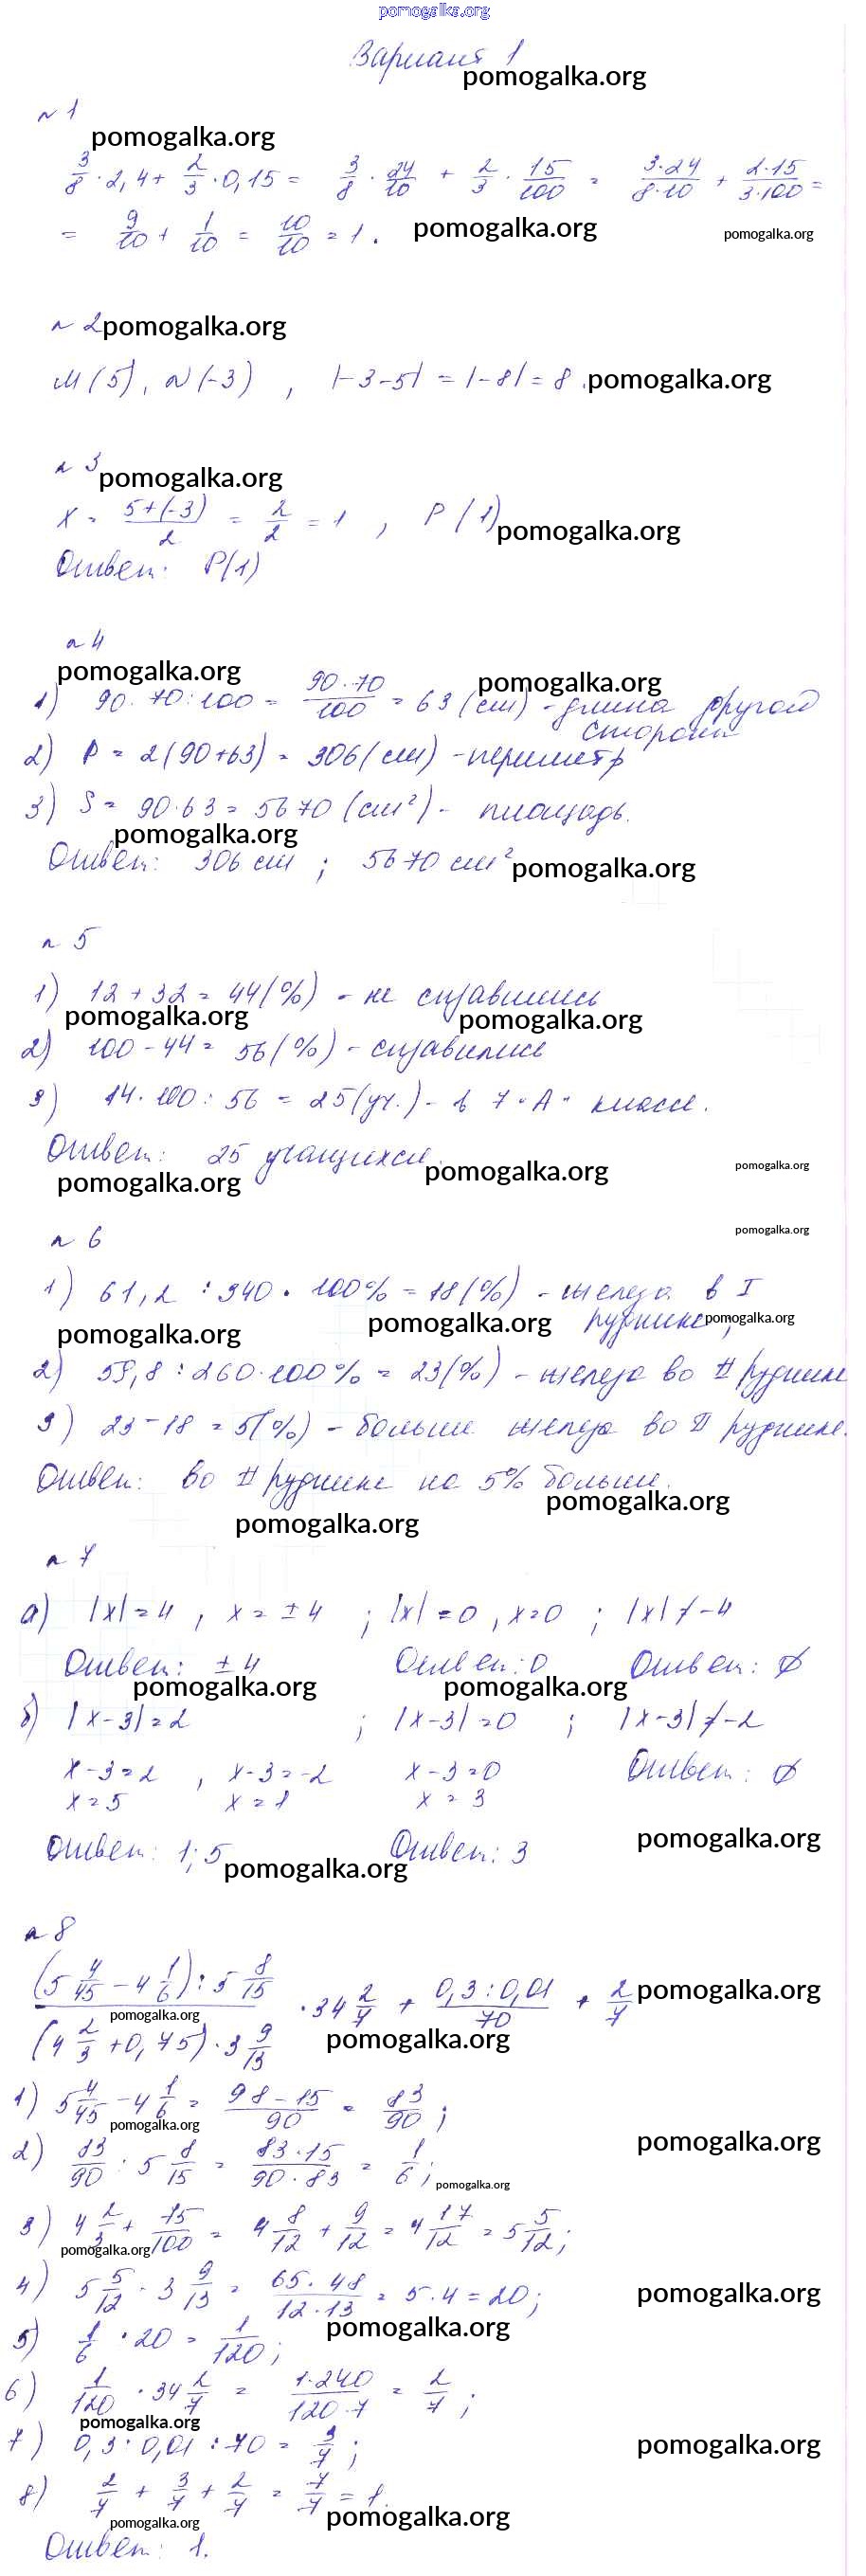 pomogalka.org
Вариант 1
pomogalka.org
№ 1
pomogalka.org
3/8 · 2,4 + 2/3 · 0,15 = 3/8 · 24/10 + 2/3 · 15/100 = 3·24/8·10 + 2·15/3·100 =
= 9/10 + 1/10 = 10/10 = 1.
pomogalka.org
pomogalka.org
№ 2
pomogalka.org
M(5), N(-3), |-3-5| = |-8| = 8.
pomogalka.org
№ 3
pomogalka.org
x = 5+(-3)/2 = 2/2 = 1, P(1)
pomogalka.org
Ответ: P(1)
№ 4
pomogalka.org
pomogalka.org
1) 90·70:100 = 90·70/100 = 63 (см) - длина другой
стороны
2) P = 2(90+63) = 306 (см) - периметр
3) S = 90·63 = 5670 (см²) - площадь.
pomogalka.org
Ответ: 306 см; 5670 см²
pomogalka.org
№ 5
1) 12 + 32 = 44(%) - не справились
pomogalka.org
pomogalka.org
2) 100 - 44 = 56(%) - справились
3) 14·100:56 = 25(уч.) - в 7 "А" классе.
Ответ: 25 учащихся.
pomogalka.org
pomogalka.org
pomogalka.org
№ 6
pomogalka.org
1) 61,2 : 340 · 100% = 18(%) - железа в I
руднике;
pomogalka.org
pomogalka.org
pomogalka.org
2) 59,8 : 260 · 100% = 23(%) - железа во II руднике
3) 23 - 18 = 5(%) - больше железа во II руднике.
Ответ: во II руднике на 5% больше.
pomogalka.org
pomogalka.org
№ 7
а) |x| = 4, x = ±4; |x| = 0, x = 0; |x| ≠ -4
Ответ: ±4 Ответ: 0 Ответ: ∅
pomogalka.org
pomogalka.org
б) |x-3| = 2; |x-3| = 0; |x-3| ≠ -2
x-3=2, x-3=-2 x-3=0 Ответ: ∅
x=5 x=1 x=3
Ответ: 1; 5 Ответ: 3
pomogalka.org
pomogalka.org
№ 8
(5 4/45 - 4 1/6) : 5 8/15 / (4 2/3 + 0,75) · 3 9/13 · 34 2/7 + 0,3:0,01/70 + 2/7
pomogalka.org
pomogalka.org
pomogalka.org
1) 5 4/45 - 4 1/6 = 98-15/90 = 83/90;
pomogalka.org
pomogalka.org
2) 83/90 : 5 8/15 = 83·15/90·83 = 1/6;
pomogalka.org
3) 4 2/3 + 75/100 = 4 8/12 + 9/12 = 4 17/12 = 5 5/12;
pomogalka.org
4) 5 5/12 · 3 9/13 = 65·48/12·13 = 5·4 = 20;
pomogalka.org
pomogalka.org
5) 1/6 : 20 = 1/120;
6) 1/120 · 34 2/7 = 1·240/120·7 = 2/7;
pomogalka.org
7) 0,3 : 0,01 : 70 = 3/7;
pomogalka.org
8) 2/7 + 3/7 + 2/7 = 7/7 = 1.
pomogalka.org
pomogalka.org
Ответ: 1.